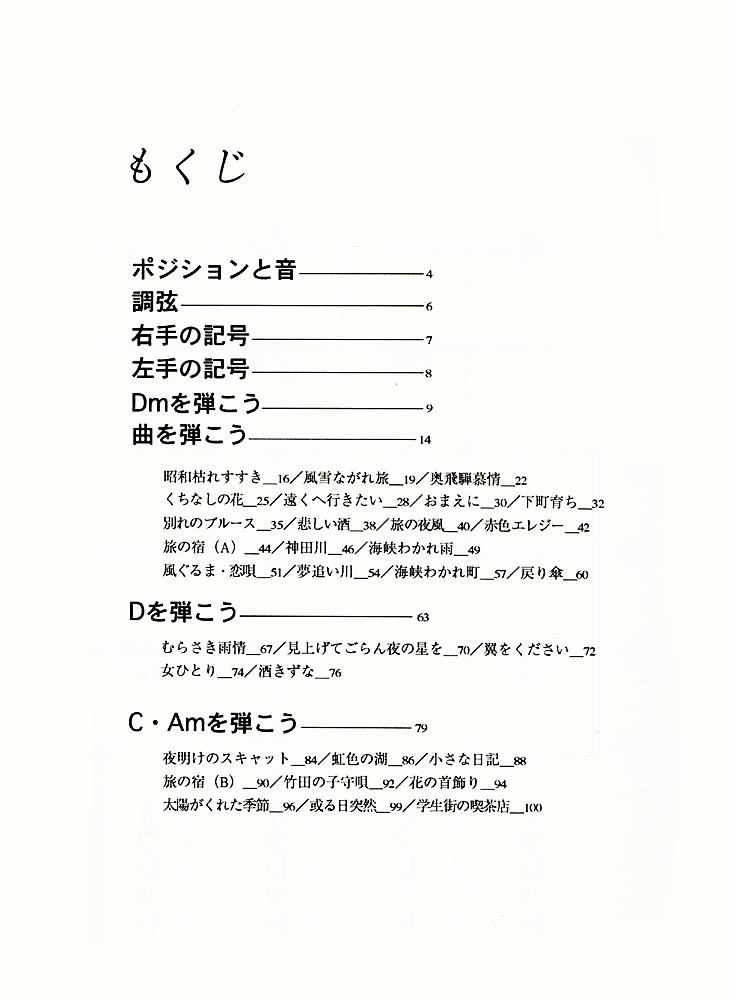 もくじ
ポジションと音——4
調弦——6
右手の記号——7
左手の記号——8
Dmを弾こう——9
曲を弾こう——14
昭和枯れすすき__16／風雪ながれ旅__19／奥飛騨慕情__22
くちなしの花__25／遠くへ行きたい__28／おまえに__30／下町育ち__32
別れのブルース__35／悲しい酒__38／旅の夜風__40／赤色エレジー__42
旅の宿（A）__44／神田川__46／海峡わかれ雨__49
風ぐるま・恋唄__51／夢追い川__54／海峡わかれ町__57／戻り傘__60
Dを弾こう——63
むらさき雨情__67／見上げてごらん夜の星を__70／翼をください__72
女ひとり__74／酒きずな__76
C・Amを弾こう——79
夜明けのスキャット__84／虹色の湖__86／小さな日記__88
旅の宿（B）__90／竹田の子守唄__92／花の首飾り__94
太陽がくれた季節__96／或る日突然__99／学生街の喫茶店__100